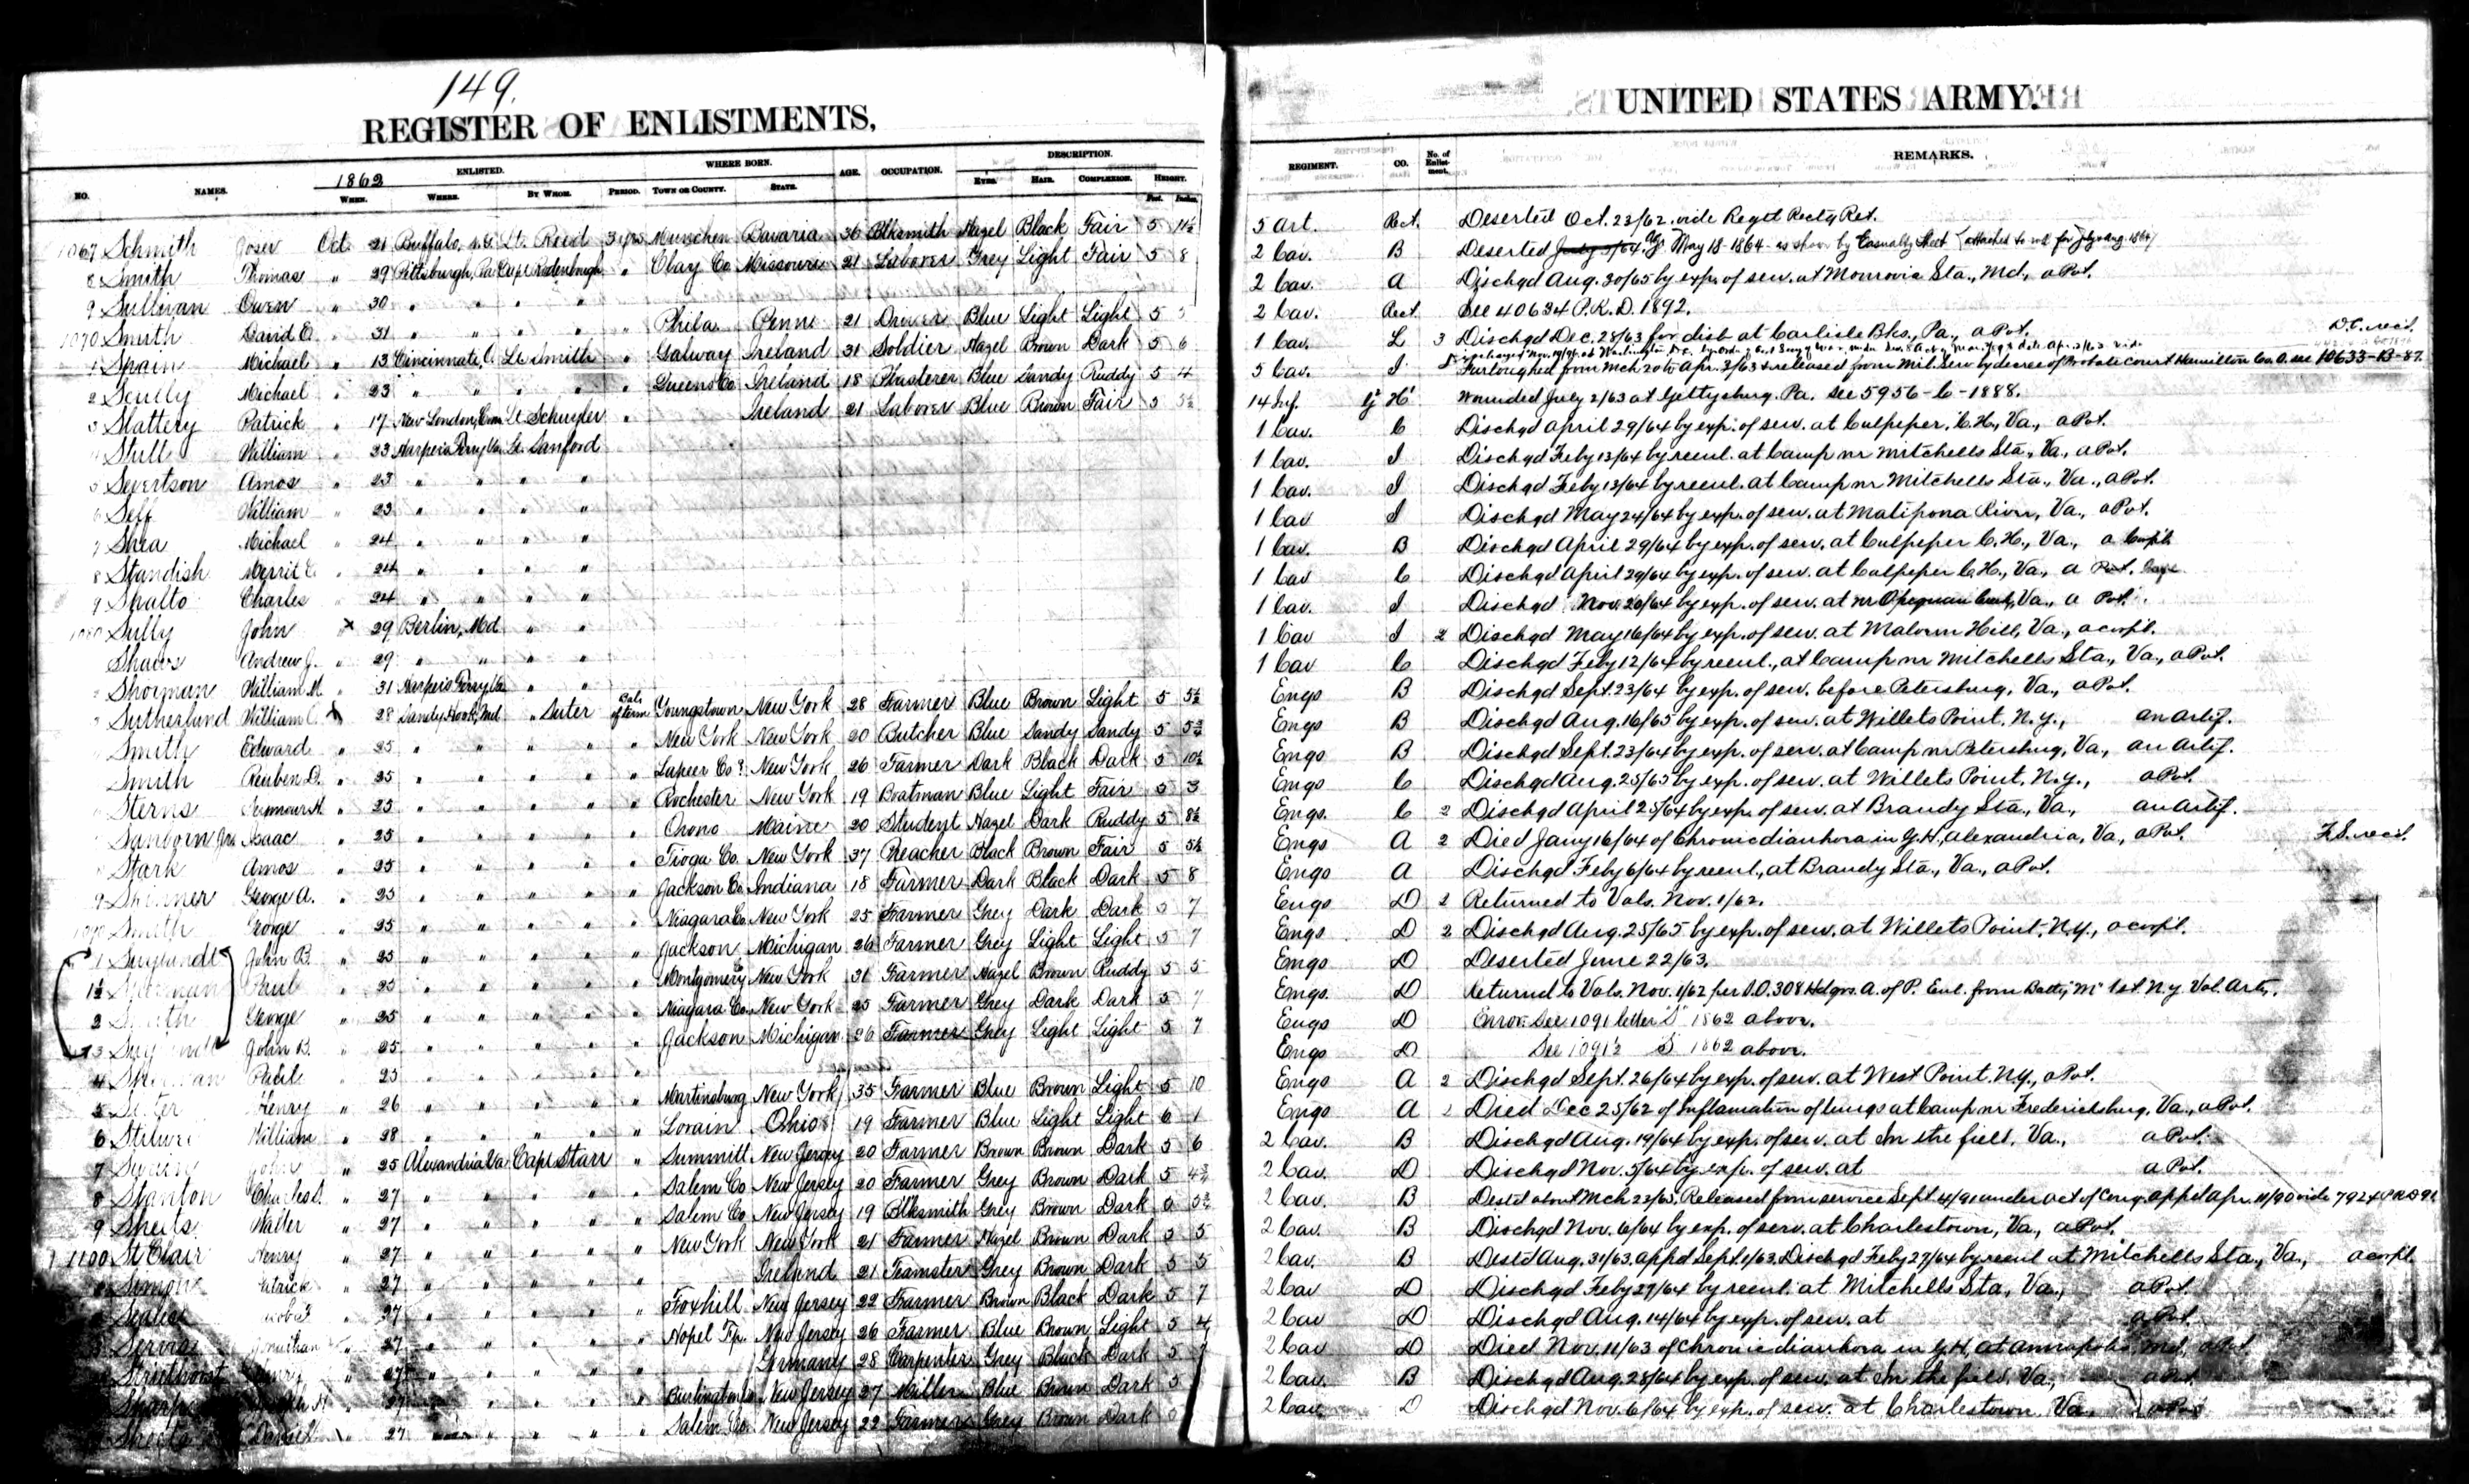 149.
REGISTER OF ENLISTMENTS,
UNITED STATES ARMY.
NO. NAMES. 1862 ENLISTED. WHEN. WHERE. BY WHOM. PERIOD. WHERE BORN. TOWN OR COUNTY. STATE. AGE. OCCUPATION. DESCRIPTION. EYES. HAIR. COMPLEXION. HEIGHT. Feet. Inches. REGIMENT. CO. No. of Enlistment. REMARKS.
1067 Schmith Josev Oct. 21 Buffalo, N.Y. Lt. Reed 3 yrs Munchen Bavaria 36 Blksmith Hazel Black Fair 5 11½ 5 Art. Rect. Deserted Oct. 23/62. vide Regtl Rectg Ret.
8 Smith Thomas " 29 Pittsburgh, Pa Capt Rodenbough " Clay Co Missouri 21 Laborer Grey Light Fair 5 8 2 Cav. B Deserted July 3/64. May 18-1864 as shown by Casualty Sheet (attached to roll for July & Aug. 1864)
9 Sullivan Owen " 30 " " " " 2 Cav. A Dischgd Aug. 30/65 by exp. of serv. at Monrovia Sta., Md., a Pvt.
1070 Smith David E. " 31 " " " " " Phila Penn 21 Driver Blue Light Light 5 2 Cav. Rect. See 40634 P.R.D. 1892.
1 Spain Michael " 13 Cincinnati, O. Lt. Smith " Galway Ireland 31 Soldier Hazel Brown Dark 5 6 1 Cav. L 3 Dischgd Dec. 28/63 for disb. at Carlisle Bks., Pa., a Pvt. D.C. rec'd.
2 Scully Michael " 23 " " " " " Queens Co Ireland 18 Plasterer Blue Sandy Ruddy 5 4 5 Cav. I Furloughed from Mch 20 to Apr. 3/63 & released from Mil. Serv by decree of Probate Court Hamilton Co. O. see 10633-B-87.
3 Slattery Patrick " 17 New London, Conn Lt. Schuyler " Ireland 21 Laborer Blue Brown Fair 5 5½ 14 Inf. G H Wounded July 2/63 at Gettysburg. Pa. See 5956-C-1888.
4 Still William " 23 Harpers Ferry Va. Lt. Sanford 1 Cav. C Dischgd April 29/64 by exp. of serv. at Culpeper, C.H., Va., a Pvt.
5 Severtson Amos " 23 " " " " 1 Cav. I Dischgd Feby 13/64 by reenl. at Camp nr Mitchells Sta., Va., a Pvt.
6 Self William " 23 " " " " 1 Cav. I Dischgd Feby 13/64 by reenl. at Camp nr Mitchells Sta., Va., a Pvt.
7 Shea Michael " 24 " " " " 1 Cav I Dischgd May 24/64 by exp. of serv. at Matipona River, Va., a Pvt.
8 Standish Merrit E. " 24 " " " " 1 Cav. B Dischgd April 29/64 by exp. of serv. at Culpeper C.H., Va., a Corpl.
9 Spalto Charles " 24 " " " " 1 Cav C Dischgd April 29/64 by exp. of serv. at Culpeper C.H., Va., a Pvt.
1080 Sully John " 29 Berlin, Md. " " 1 Cav. I Dischgd Nov. 20/64 by exp. of serv. at nr Opequan Creek, Va., a Pvt.
Shaws Andrew J. " 29 " " " " 1 Cav I 2 Dischgd May 16/64 by exp. of serv. at Malvern Hill, Va., a corpl.
2 Shorman William M. " 31 Harpers Ferry Va " " 1 Cav C Dischgd Feby 12/64 by reenl., at Camp nr Mitchells Sta., Va., a Pvt.
3 Sutherland William C. 28 Sandy Hook, Md " Suter Bal. of term Youngstown New York 28 Farmer Blue Brown Light 5 5½ Engs B Dischgd Sept. 23/64 by exp. of serv. before Petersburg, Va., a Pvt.
Smith Edward " 25 " " " " " New York New York 20 Butcher Blue Sandy Sandy 5 5¾ Engs B Dischgd Aug. 16/65 by exp. of serv. at Willets Point, N.Y., an Artif.
Smith Reuben D. " 25 " " " " " Lapeer Co? New York 26 Farmer Dark Black Dark 5 10½ Engs B Dischgd Sept. 23/64 by exp. of serv. at Camp nr Petersburg, Va., an Artif.
Sterns Seymour H. " 25 " " " " " Rochester New York 19 Boatman Blue Light Fair 5 3 Engs C Dischgd Aug. 25/65 by exp. of serv. at Willets Point, N.Y., a Pvt.
Sanborn Jr. Isaac " 25 " " " " " Orono Maine 20 Student Hazel Dark Ruddy 5 8½ Engs. C 2 Dischgd April 25/64 by exp. of serv. at Brandy Sta., Va., an Artif.
Stark Amos " 25 " " " " " Tioga Co. New York 37 Preacher Black Brown Fair 5 5½ Engs A 2 Died Jany 16/64 of Chronic diarrhora in G.H., Alexandria, Va., a Pvt. F.S. rec'd.
9 Skinner George A. " 25 " " " " " Jackson Co Indiana 18 Farmer Dark Black Dark 5 8 Engs A Dischgd Feby 6/64 by reenl., at Brandy Sta., Va., a Pvt.
1090 Smith George " 25 " " " " " Niagara Co New York 25 Farmer Grey Dark Dark 5 7 Engs D 2 Returned to Vols. Nov. 1/62.
1 John B. " 25 " " " " " Jackson Michigan 26 Farmer Grey Light Light 5 7 Engs. D 2 Dischgd Aug. 25/65 by exp. of serv. at Willets Point, N.Y., a corpl.
1½ Sherman Paul " 25 " " " " " Montgomery Co New York 31 Farmer Hazel Brown Ruddy 5 5 Engs D Deserted June 22/63.
2 Smith George " 25 " " " " " Niagara Co. New York 25 Farmer Grey Dark Dark 5 7 Engs. D Returned to Vols. Nov. 1/62 per S.O. 308 Hdqrs. A. of P. Enl. from Batty "M" 1st. N.Y. Vol. Arty.
3 John B. " 25 " " " " " Jackson Michigan 26 Farmer Grey Light Light 5 7 Engs D Error. See 1091 letter "S" 1862 above.
4 Sherman Paul " 25 " " " " " Engs D See 1091½ S 1862 above.
5 Suter Henry " 26 " " " " " Martinsburg New York 35 Farmer Blue Brown Light 5 10 Engs A 2 Dischgd Sept. 26/64 by exp. of serv. at West Point. N.Y., a Pvt.
6 William " 28 " " " " " Lorain Ohio 19 Farmer Blue Light Light 6 1 Engs A 2 Died Dec 25/62 of Inflamation of lungs at Camp nr Fredericksburg, Va., a Pvt.
7 John " 25 Alexandria Va Capt Starr " Summitt New Jersey 20 Farmer Brown Brown Dark 5 6 2 Cav. B Dischgd Aug. 19/64 by exp. of serv. at In the field, Va., a Pvt.
8 Stanton Charles S. " 27 " " " " " Salem Co New Jersey 20 Farmer Grey Brown Dark 5 4¾ 2 Cav. D Dischgd Nov. 5/64 by exp. of serv. at a Pvt.
9 Sheets Walter " 27 " " " " " Salem Co New Jersey 19 Blksmith Grey Brown Dark 5 5¾ 2 Cav. B Desrtd about Mch 22/63. Released from service Sept. 4/91 under act of Cong. appd Apr. 11/90 vide 7924 P.R.D 91
1100 St Clair Henry " 27 " " " " " New York New York 21 Farmer Hazel Brown Dark 5 5 2 Cav. B Dischgd Nov. 6/64 by exp. of serv. at Charlestown, Va., a Pvt.
Simon Patrick " 27 " " " " " Ireland 21 Teamster Grey Brown Dark 5 5 2 Cav. B Desrtd Aug. 31/63. appd Sept. 1/63. Dischgd Feby 27/64 by reenl. at Mitchells Sta., Va., a corpl.
Jacob " 27 " " " " " Foxhill New Jersey 22 Farmer Brown Black Dark 5 7 2 Cav D Dischgd Feby 27/64 by reenl. at Mitchells Sta, Va., a Pvt.
Servis Jonathan " 27 " " " " " Hopel Tp. New Jersey 26 Farmer Blue Brown Light 5 4 2 Cav D Dischgd Aug. 14/64 by exp. of serv. at a Pvt.
Henry " 27 " " " " " Germany 28 Carpenter Grey Black Dark 5 2 Cav D Died Nov. 11/63 of Chronic diarrhora in G.H. at Annapolis, Md., a Pvt.
Sharp " 27 " " " " " Burlington Co New Jersey 27 Miller Blue Brown Dark 5 2 Cav. B Dischgd Aug. 28/64 by exp. of serv. at In the field, Va., a Pvt.
Sheets Daniel " 27 " " " " Salem Co. New Jersey 22 Farmer Grey Brown Dark 2 Cav. D Dischgd Nov. 6/64 by exp. of serv. at Charlestown, Va., a Pvt.